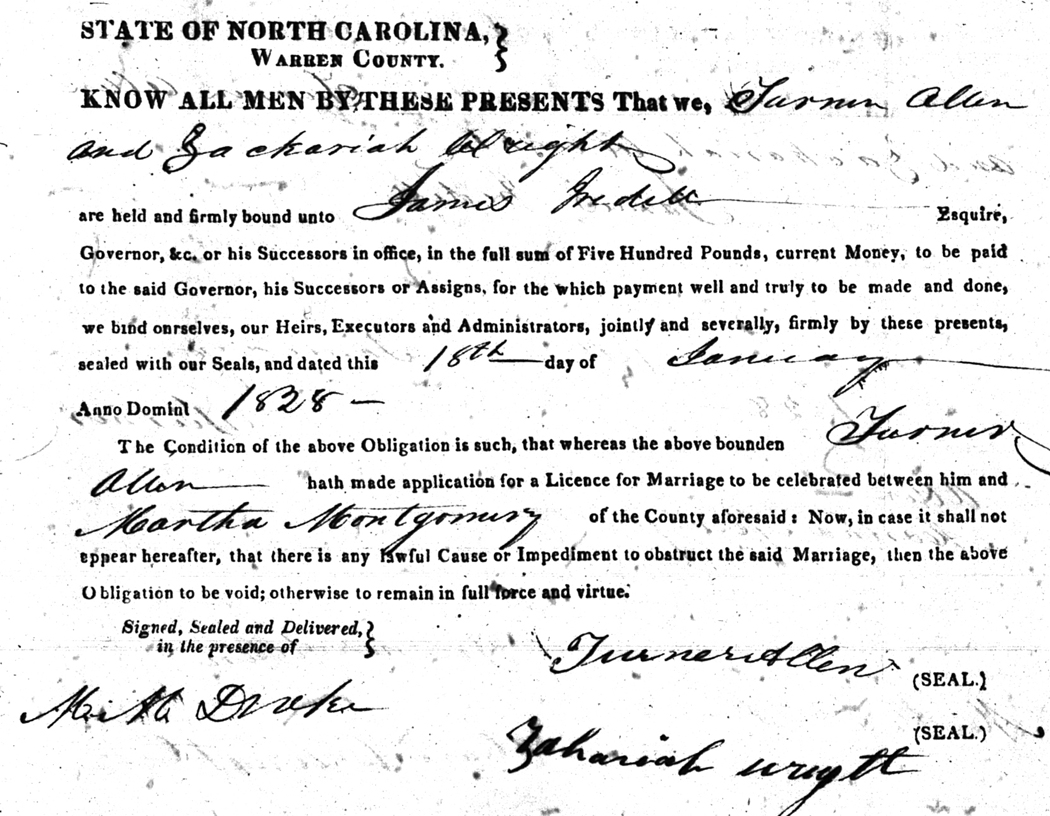 STATE OF NORTH CAROLINA,
WARREN COUNTY.
KNOW ALL MEN BY THESE PRESENTS That we, Turner Allen
and Zackariah Wright
are held and firmly bound unto James Iredell Esquire,
Governor, &c. or his Successors in office, in the full sum of Five Hundred Pounds, current Money, to be paid
to the said Governor, his Successors or Assigns, for the which payment well and truly to be made and done,
we bind onrselves, our Heirs, Executors and Administrators, jointly and severally, firmly by these presents,
sealed with our Seals, and dated this 18th day of January
Anno Domini 1828 —
The Condition of the above Obligation is such, that whereas the above bounden Turner
Allen hath made application for a Licence for Marriage to be celebrated between him and
Martha Montgomery of the County aforesaid: Now, in case it shall not
appear hereafter, that there is any lawful Cause or Impediment to obstruct the said Marriage, then the above
Obligation to be void; otherwise to remain in full force and virtue.
Signed, Sealed and Delivered,
in the presence of
Turner Allen (SEAL.)
Drake
Zahariah wrytt (SEAL.)